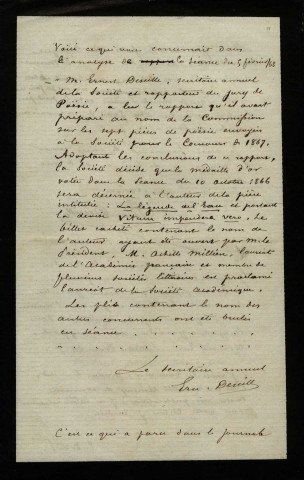 Voici ce qui vous concernait dans
l'analyse de la séance du 5 février 68
M. Ernest Deseille, secrétaire annuel
de la Société et rapporteur du Jury de
Poésie, a lu le rapport qu'il avait
préparé au nom de la Commission
sur les sept pièces de poésie envoyées
à la Société pour le Concours de 1867.
Adoptant les conclusions de ce rapport,
la Société décide que la médaille d'or
votée dans la séance du 10 octobre 1866
sera décernée à l'auteur de la pièce
intitulée : La légende de l'Eau et portant
la devise Vitam impendere vero. Le
billet cacheté contenant le nom de
l'auteur ayant été ouvert par M. le
Président, M. Achille Millien, lauréat
de l'Académie française et membre de
plusieurs sociétés littéraires est proclamé
lauréat de la Société Académique.
Les plis contenant le nom des
autres concurrents ont été brulés
en séance
Le secrétaire annuel
Ern. Deseille
C'est ce qui a paru dans le journal